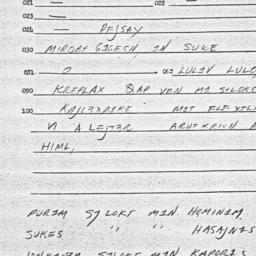 021 — 022 —
023 —
024 — PEJSAY
030 MIRDRY GIGESN, IN SUKE
031 0 062 LULIV LULO
090 KREPLAX BAP VEN MI SLOKS
100 MIT FLE
N A LEJTER ARUFKRIVN A
HIML,
PURIM SJLOKT MIN HEMINIM,
SUKES " " HASAJNIS
SJLOKT MIN KAPORIS